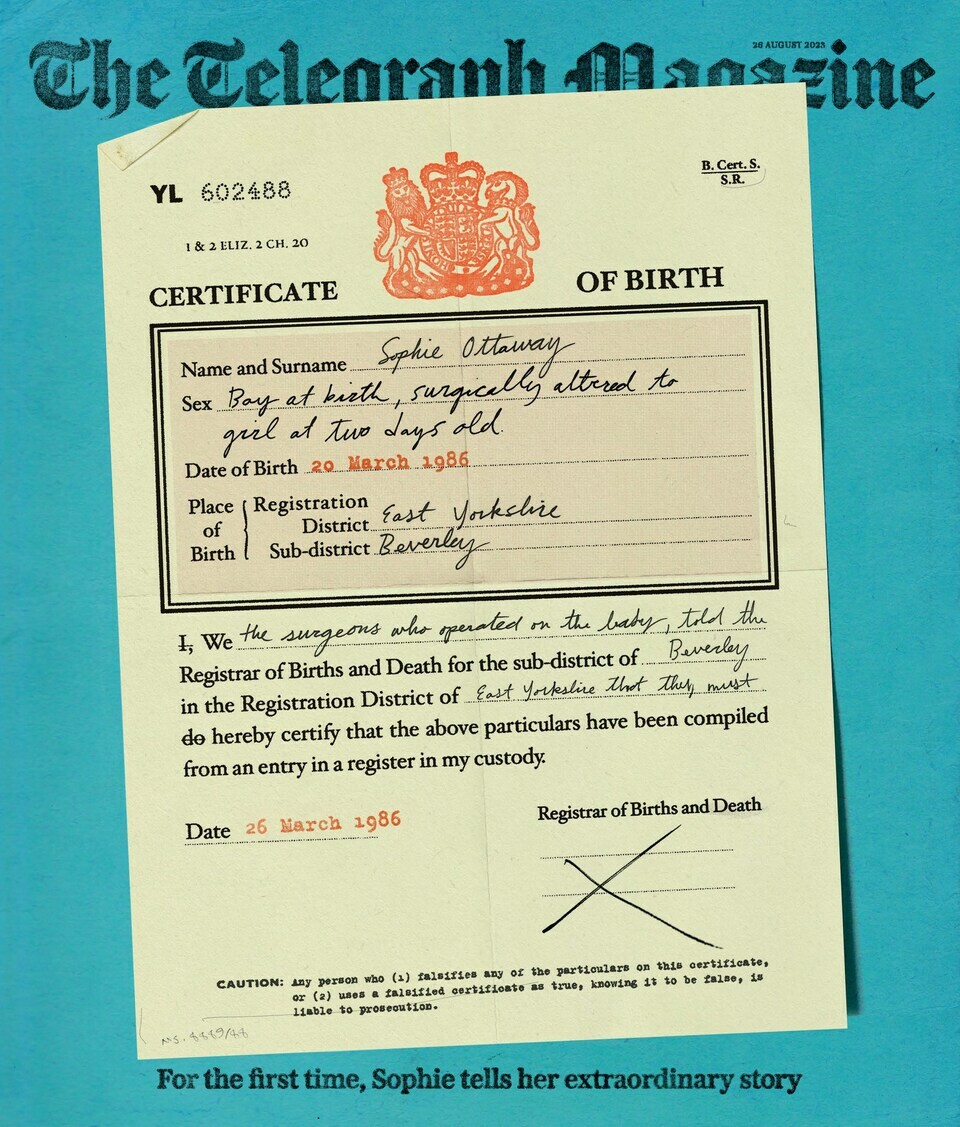 28 AUGUST 2023
The Telegraph Magazine
YL 602488
B. Cert. S.
S.R.
1 & 2 ELIZ. 2 CH. 20
CERTIFICATE OF BIRTH
Name and Surname Sophie Ottaway
Sex Boy at birth, surgically altered to
girl at two days old.
Date of Birth 20 March 1986
Place of Birth { Registration District East Yorkshire
Sub-district Beverley
I, We the surgeons who operated on the baby, told the
Registrar of Births and Death for the sub-district of Beverley
in the Registration District of East Yorkshire that they must
do hereby certify that the above particulars have been compiled
from an entry in a register in my custody.
Registrar of Births and Death
Date 26 March 1986
CAUTION: Any person who (1) falsifies any of the particulars on this certificate,
or (2) uses a falsified certificate as true, knowing it to be false, is
liable to prosecution.
For the first time, Sophie tells her extraordinary story